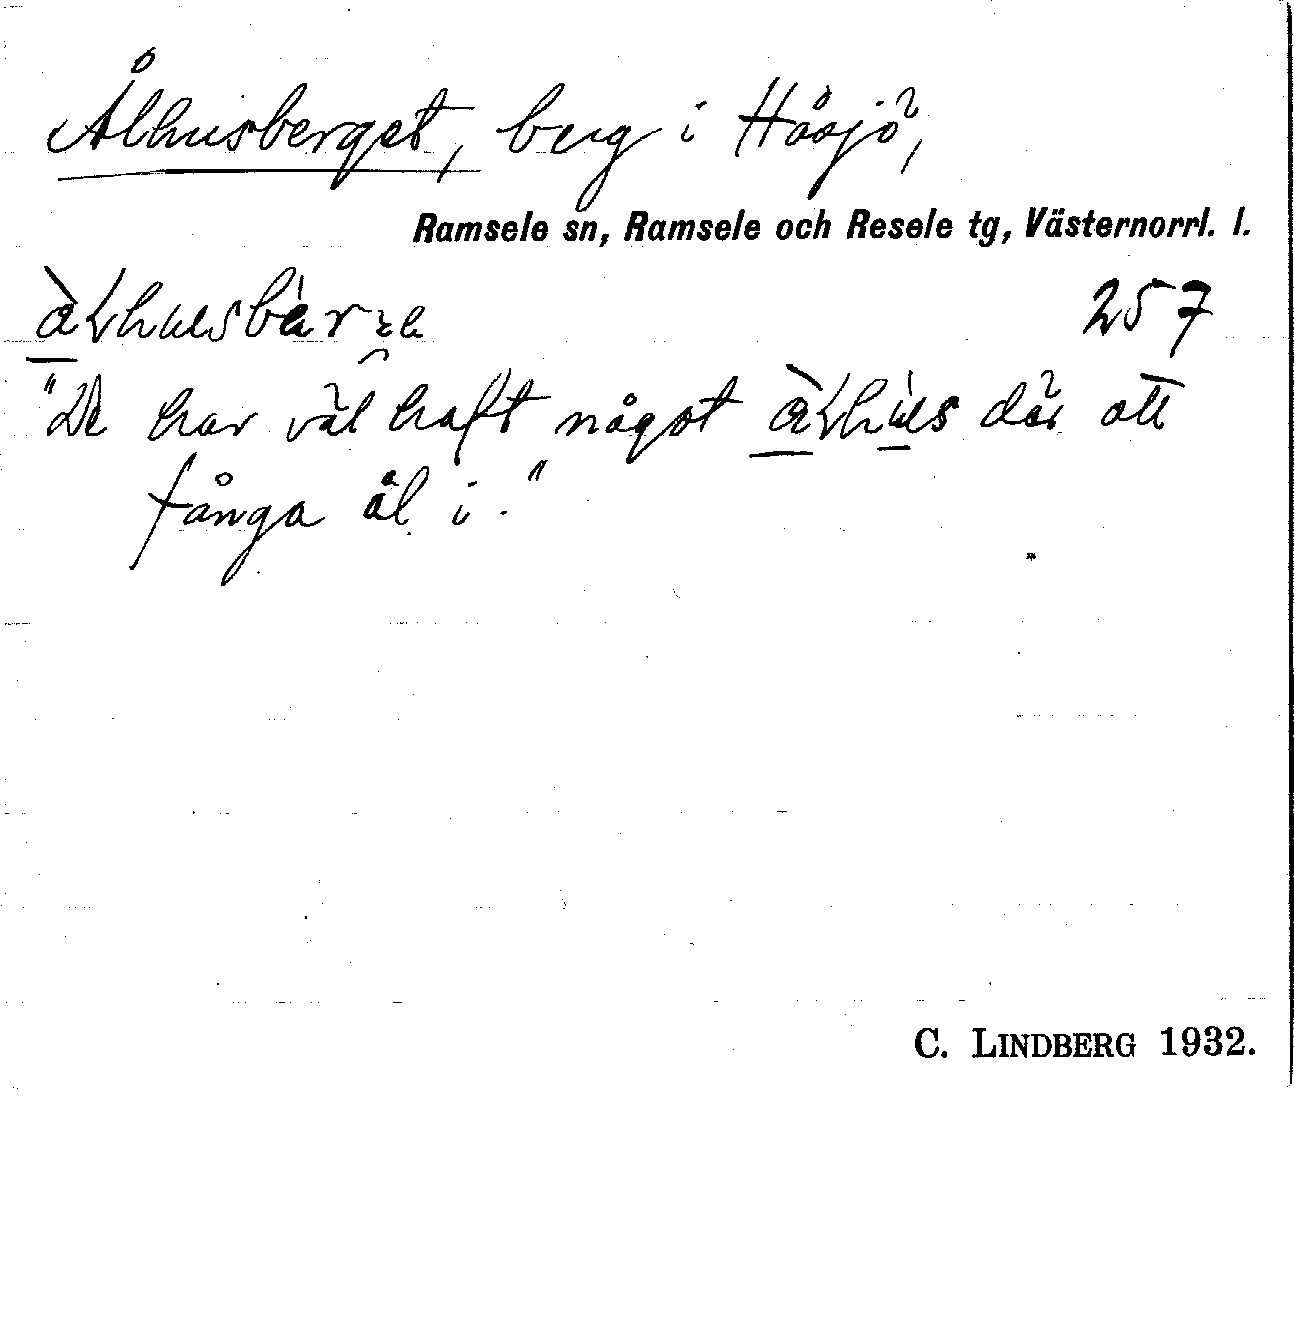 Ålhusberget, berg i Håsjö,
Ramsele sn, Ramsele och Resele tg, Västernorrl. l.
257
"De har väl haft något där att
fånga ål i."
C. LINDBERG 1932.